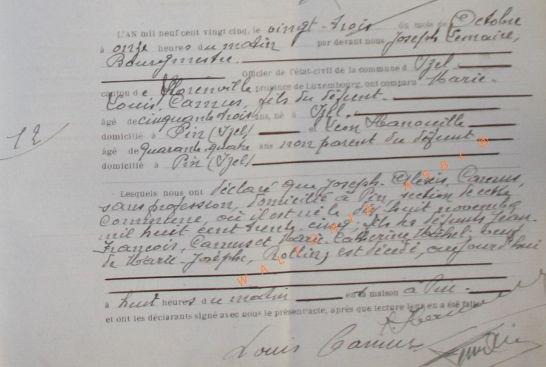 L'AN mil neuf cent vingt cinq, le vingt-trois du mois de Octobre
à onze heures du matin par devant nous Joseph Lemaire,
Bourgmestre
Officier de l'état-civil de la commune d'Izel
canton de Florenville province de Luxembourg, ont comparu Marie-
Louis, Camus, fils du défunt
âgé de cinquante trois ans, né à Izel
domicilié à Pin (Izel) et Léon Hanouille
âgé de quarante quatre ans non parent du défunt
domicilié à Pin (Izel)
12
Lesquels nous ont déclaré que Joseph-Alexis, Camus,
sans profession, domicilié à Pin, section de cette
Commune, où il est né le dix huit novembre
mil huit cent trente cinq, fils des défunts Jean-
François, Camus et Marie-Catherine veuf
de Marie-Josèphe, Rollin, est décédé, aujourd'hui
à huit heures du matin en sa maison à Pin
et ont les déclarants signé avec nous le présent acte, après que lecture leur en a été faite
Louis Camus